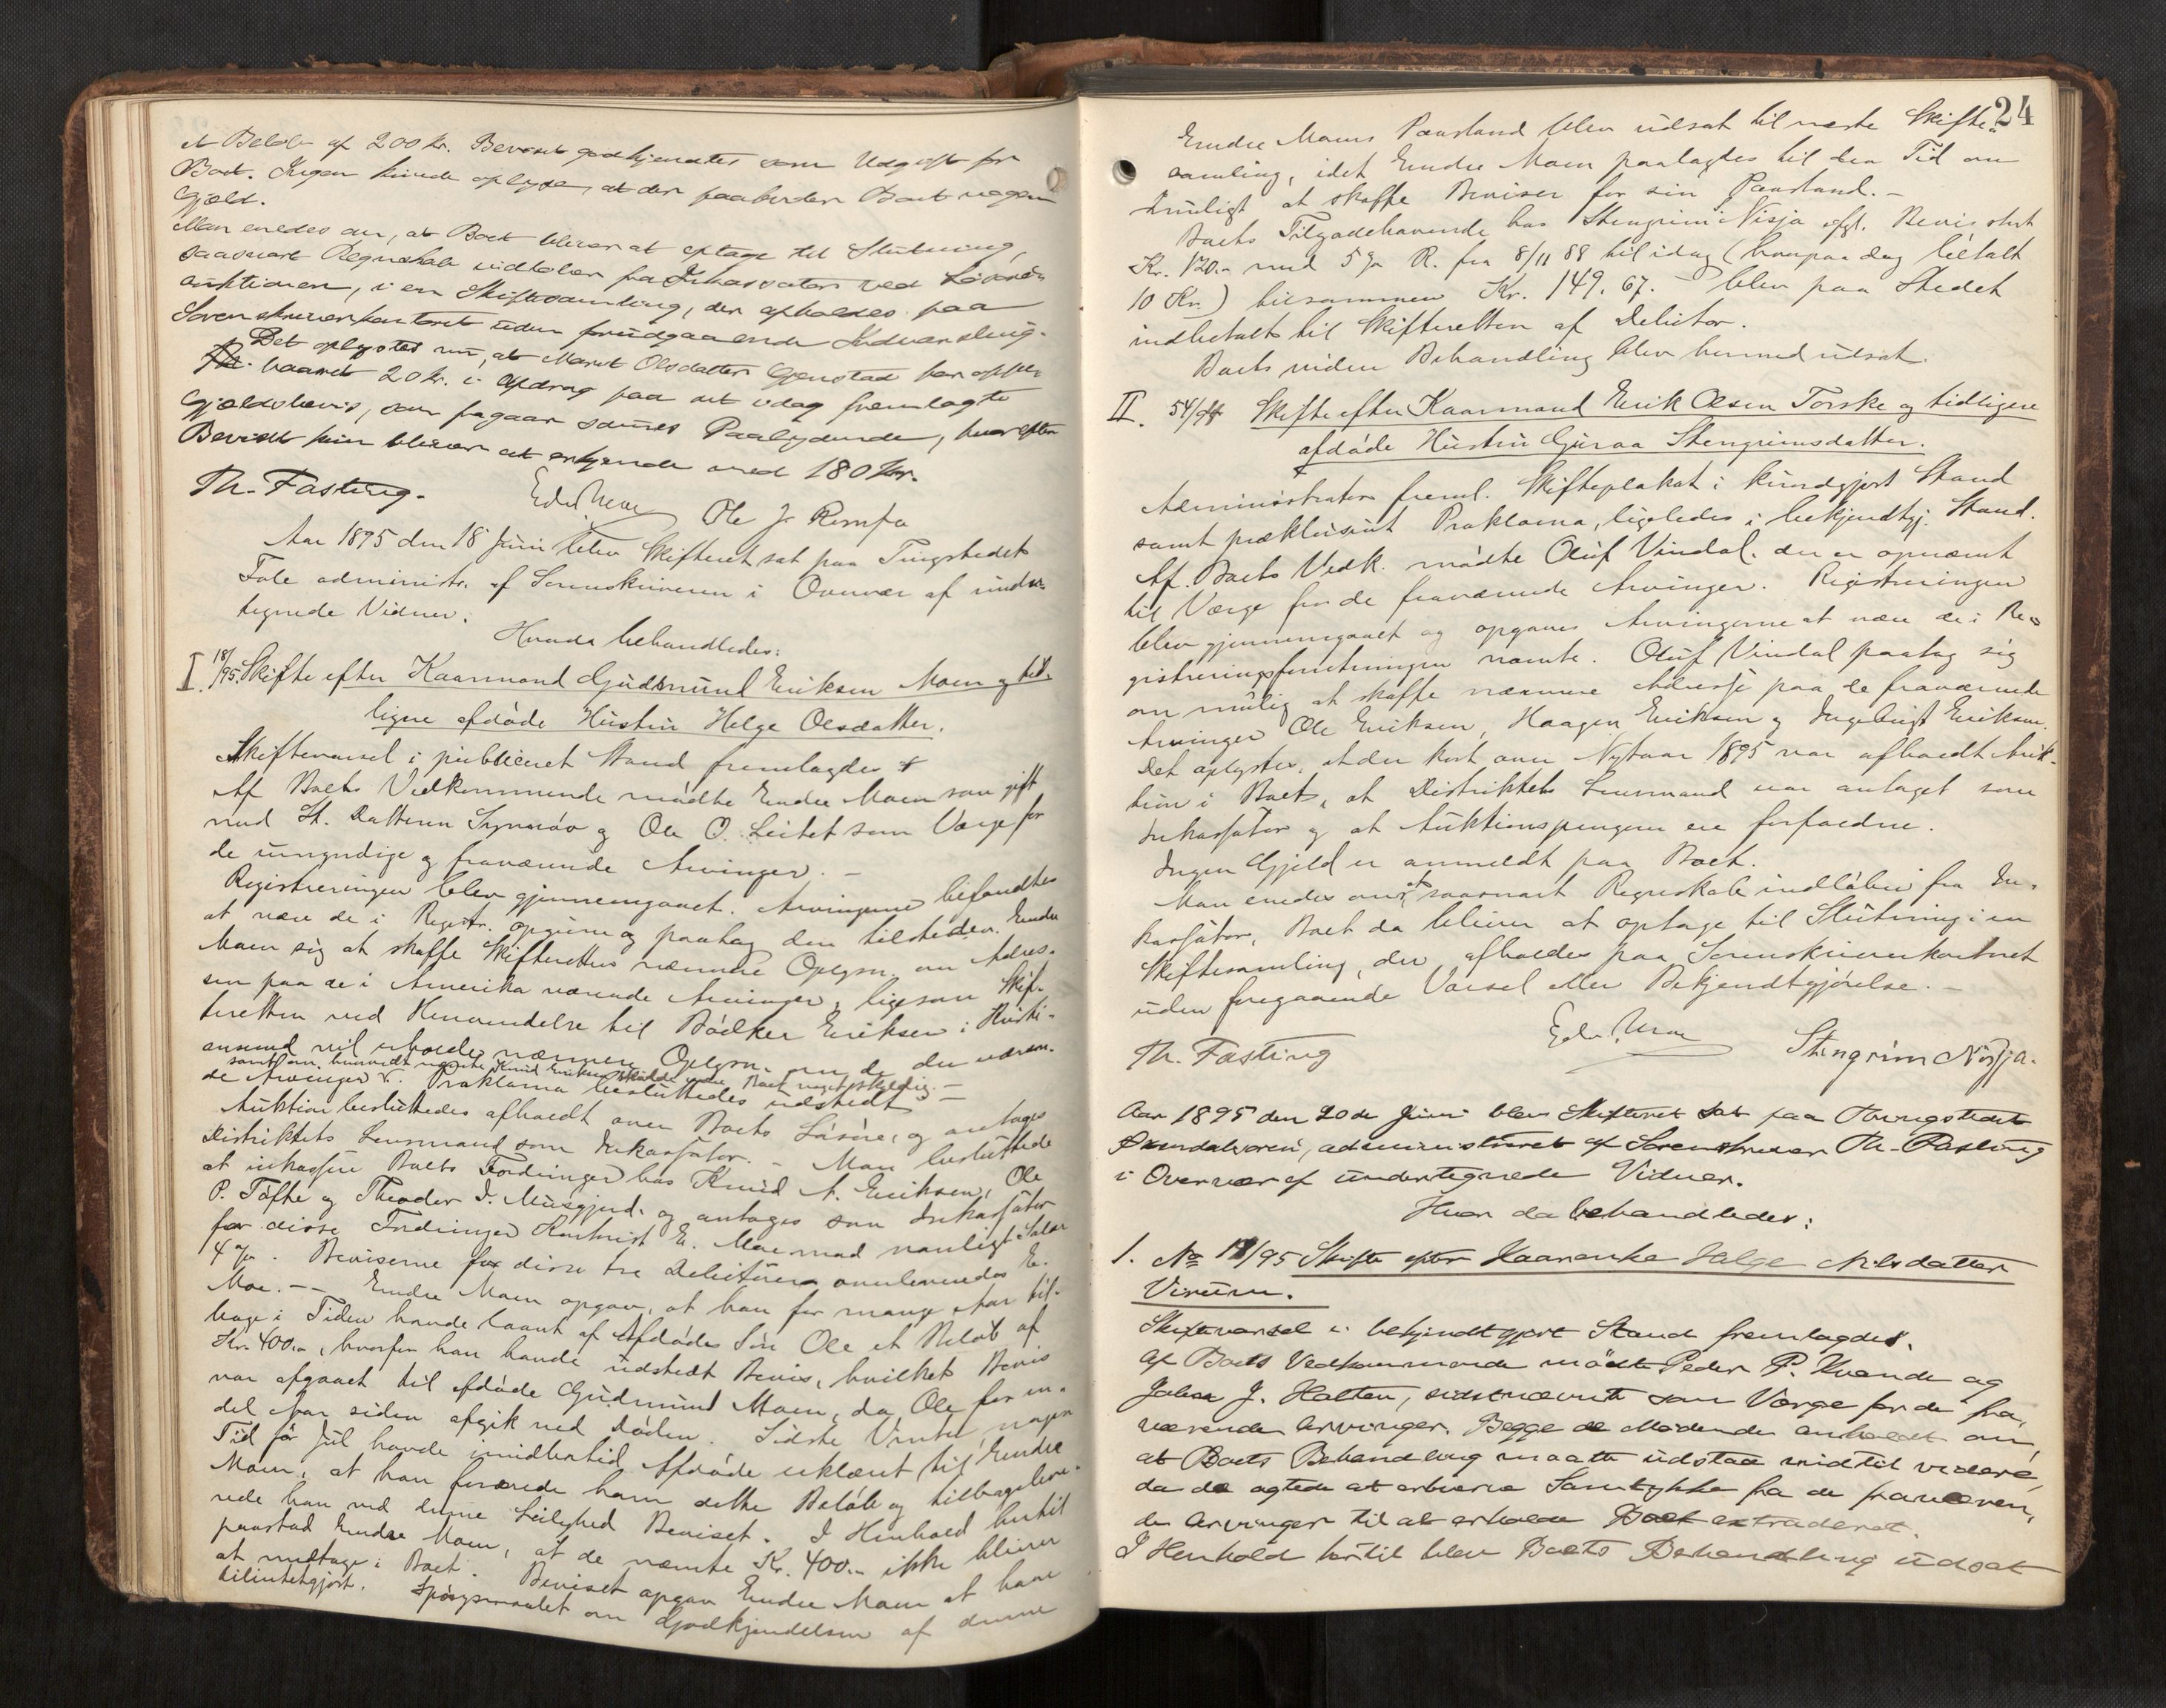 et Beløb af 200 kr. Beviset godkjendtes som Udgift for
Boet. Ingen kunde oplyse, at der paahviler Boet nogen
Gjæld.
Man enedes om, at Boet bliver at optage til Slutning,
saasnart Regnskab indløber fra Inkassator ved Løsøre
auktionen, i en Skiftesamling, der afholdes paa
Sorenskriverkontoret uden forudgaaende Indvarsling.
Det oplystes nu, at Marit Olsdatter Gjenstad har
baaret 20 kr. i Afdrag paa det idag fremlagte
Gjældsbevis, som fragaar dennes Paalydende, hvorefter
Beviset kun bliver at erkjende med 180 kr.
Th. Fasting. Edv Moe Ole J. Romfo
Aar 1895 den 18 Juni blev Skifteret sat paa Tingstedet
Fale administr. af Sorenskriveren i Overvær af under-
tegnede Vidner.
Hvorda behandledes:
I. 18/95. Skifte efter Kaarmand Gudmund Eriksen Moen og tid-
ligere afdøde Hustru Helge Olsdatter.
Skiftevarsel i publiceret Stand fremlagdes
Af Boets Vedkommende mødte Endre Moen som gift
med St. Datteren Synnøv og Ole O. Leitet som Værge for
de umyndige og fraværende Arvinger. –
Registreringen blev gjennemgaaet. Arvingerne befandtes
at være de i Registr. opgivne og paatog den tilstedev. Endre
Moen sig at skaffe Skifteretten nærmere Oplysn. om Adres-
sen paa de i Amerika værende Arvinger, ligesom Skif-
teretten ved Henvendelse til Bødker Eriksen i Kristi-
ansund vil erholde nærmere Oplysn. om de der væren-
samt om hvorvidt nævnte Knud Eriksen skulde være Boet noget skyldig. –
de Arvinger. Proklama besluttedes udstedt –
Auktion besluttedes afholdt over Boets Løsøre, og antages
Distriktets Lensmand som Inkassator. – Man besluttede
at inkassere Boets Fordringer hos Knud A. Eriksen, Ole
P. Tøfte og Theodor I. Musgjerd og antages som Inkassator
for disse Fordringer Kontorist E. Moe mod vanligt Salær
4 %. Beviserne for disse tre Debitorer overleveredes E.
Moe. – – Endre Moen opgav, at han for mange Aar til-
bage i Tiden havde laant af Afdødes Søn Ole et Beløb af
Kr. 400.-, hvorfor han havde udstedt Bevis, hvilket Bevis
var afgaaet til afdøde Gudmund Moen, da Ole for en
del Aar siden afgik ved Døden. Sidste Vinter, nogen
Tid før Jul havde imidlertid Afdøde erklæret til Endre
Moen, at han forærede ham dette Beløb og tilbageleve-
rede han ved denne Leilighed Beviset. I Henhold hertil
paastod Endre Moen, at de nævnte Kr. 400.- ikke bliver
at medtage i Boet. Beviset opgav Endre Moen at have
tilintetgjort. Spørgsmaalet om Godkjendelsen af denne
24
Endre Moens Paastand blev udsat til næste Skifte-
samling, idet Endre Moen paalagdes til den Tid om
muligt at skaffe Beviser for sin Paastand. –
Boets Tilgodehavende hos Stengrim Nisja ifgl. Bevis stort
Kr. 120.- med 5 % R. fra 8/11 88 til idag (hvorpaa dog betalt
10 Kr.) tilsammen Kr. 149.67. – blev paa Stedet
indbetalt til Skifteretten af Debitor.
Boets videre Behandling blev hermed udsat.
II. 54/94 Skifte efter Kaarmand Erik Olsen Torske og tidligere
afdøde Hustru Guraa Stengrimsdatter.
Administrator freml. Skifteplakat i kundgjort Stand
samt præklusivt Proklama, ligeledes i bekjendtgj. Stand.
Af Boets Vedk. mødte Oluf Vindal, der er opnævnt
til Værge for de fraværende Arvinger. Registreringen
blev gjennemgaaet og opgaves Arvingerne at være de i Re-
gistreringsforretningen nævnte. Oluf Vindal paatog sig
om mulig at skaffe nærmere Adresse paa de fraværende
Arvinger Ole Eriksen, Haagen Eriksen og Ingebrigt Eriksen.
Det oplystes, at der kort over Nytaar 1895 var afholdt Auk-
tion i Boet, at Distriktets Lensmand var antaget som
Inkassator og at Auktionspengene ere forfaldne.
Ingen Gjæld er anmeldt paa Boet.
Man enedes om, at saasnart Regnskab indløber fra In-
kassator, Boet da bliver at optage til Slutning i en
Skiftesamling, der afholdes paa Sorenskriverkontoret
uden foregaaende Varsel eller Bekjendtgjørelse. –
Th. Fasting Edv. Moe Stengrim Nisja.
Aar 1895 den 20de Juni blev Skifteret sat paa Thingstedet
Sundalsøren, administreret af Sorenskriver Th. Fasting
i Overvær af undertegnede Vidner.
Hvor da behandledes:
1. No 17/95 Skifte efter Kaarenke Helge Nilsdatter
Virum.
Skiftevarsel i bekjendtgjort Stand fremlagdes.
Af Boets Vedkommende mødte Peder P. Kvande og
Johan J. Halten, sidstnævnte som Værge for de fra-
værende Arvinger. Begge de Mødende anholdt om,
at Boets Behandling maatte udstaa indtil videre,
da de agtede at erhverve Samtykke fra de fraværen-
de Arvinger til at erholde Boet extraderet.
I Henhold hertil blev Boets Behandling udsat